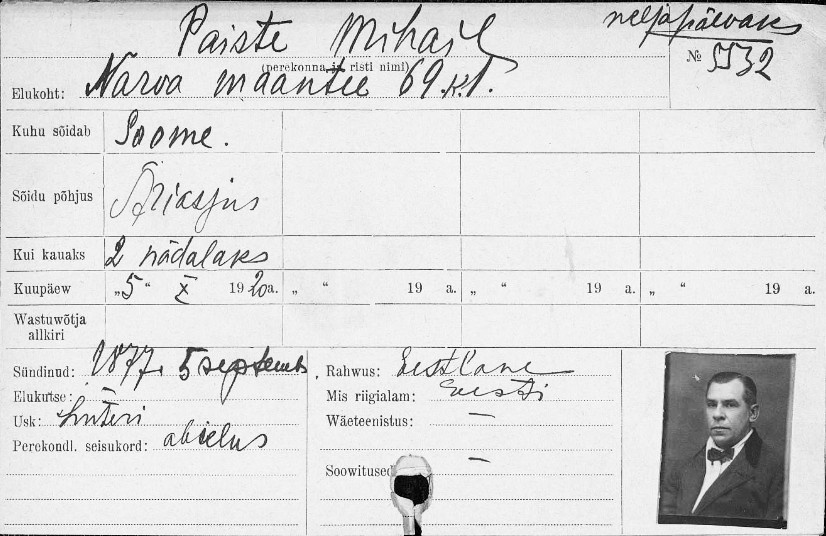 Paiste Mihail
neljapäevaks
(perekonna ja risti nimi)
№ 5532
Elukoht: Narva maantee 69.k.1.
Kuhu sõidab Soome.
Sõidu põhjus Äriasjus
Kui kauaks 2 nädalaks
Kuupäew „5“ X 1920a. „ “ 19 a. „ “ 19 a. „ “ 19 a.
Wastuwõtja
allkiri
Sündinud: 1877. 5 septemb.
Rahwus: Eestlane
Elukutse: —
Mis riigialam: Eesti
Usk: Luteri
Wäeteenistus: —
Perekondl. seisukord: abielus
Soowitused —